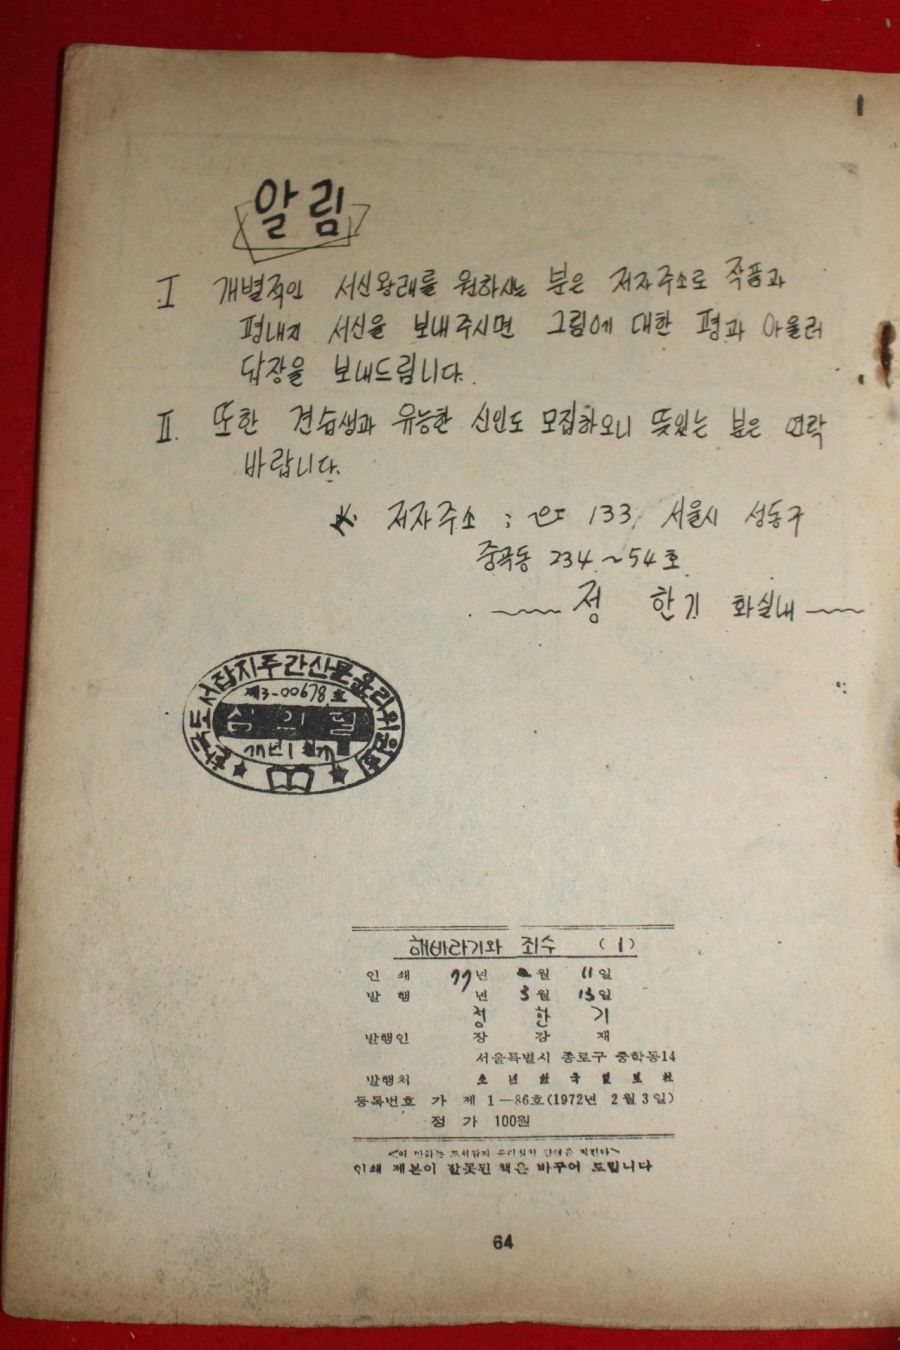 알림
I 개별적인 서신왕래를 원하시는 분은 저자주소로 작품과
평내지 서신을 보내주시면 그림에 대한 평과 아울러
답장을 보내드립니다.
II. 또한 견습생과 유능한 신인도 모집하오니 뜻있는 분은 연락
바랍니다.
※ 저자주소 : 133 서울시 성동구
중곡동 234~54호
정 한기 화실내
한국도서잡지주간신문윤리위원회
제3-00678호
심의필
해바라기와 죄수 (1)
인 쇄 77년 2월 11일
발 행 년 3월 15일
정 한 기
발행인 장 강 재
서울특별시 종로구 중학동14
발행처 소년한국일보사
등록번호 가 제 1—86호(1972년 2월 3일)
정 가 100원
인쇄 제본이 잘못된 책은 바꾸어 드립니다
64